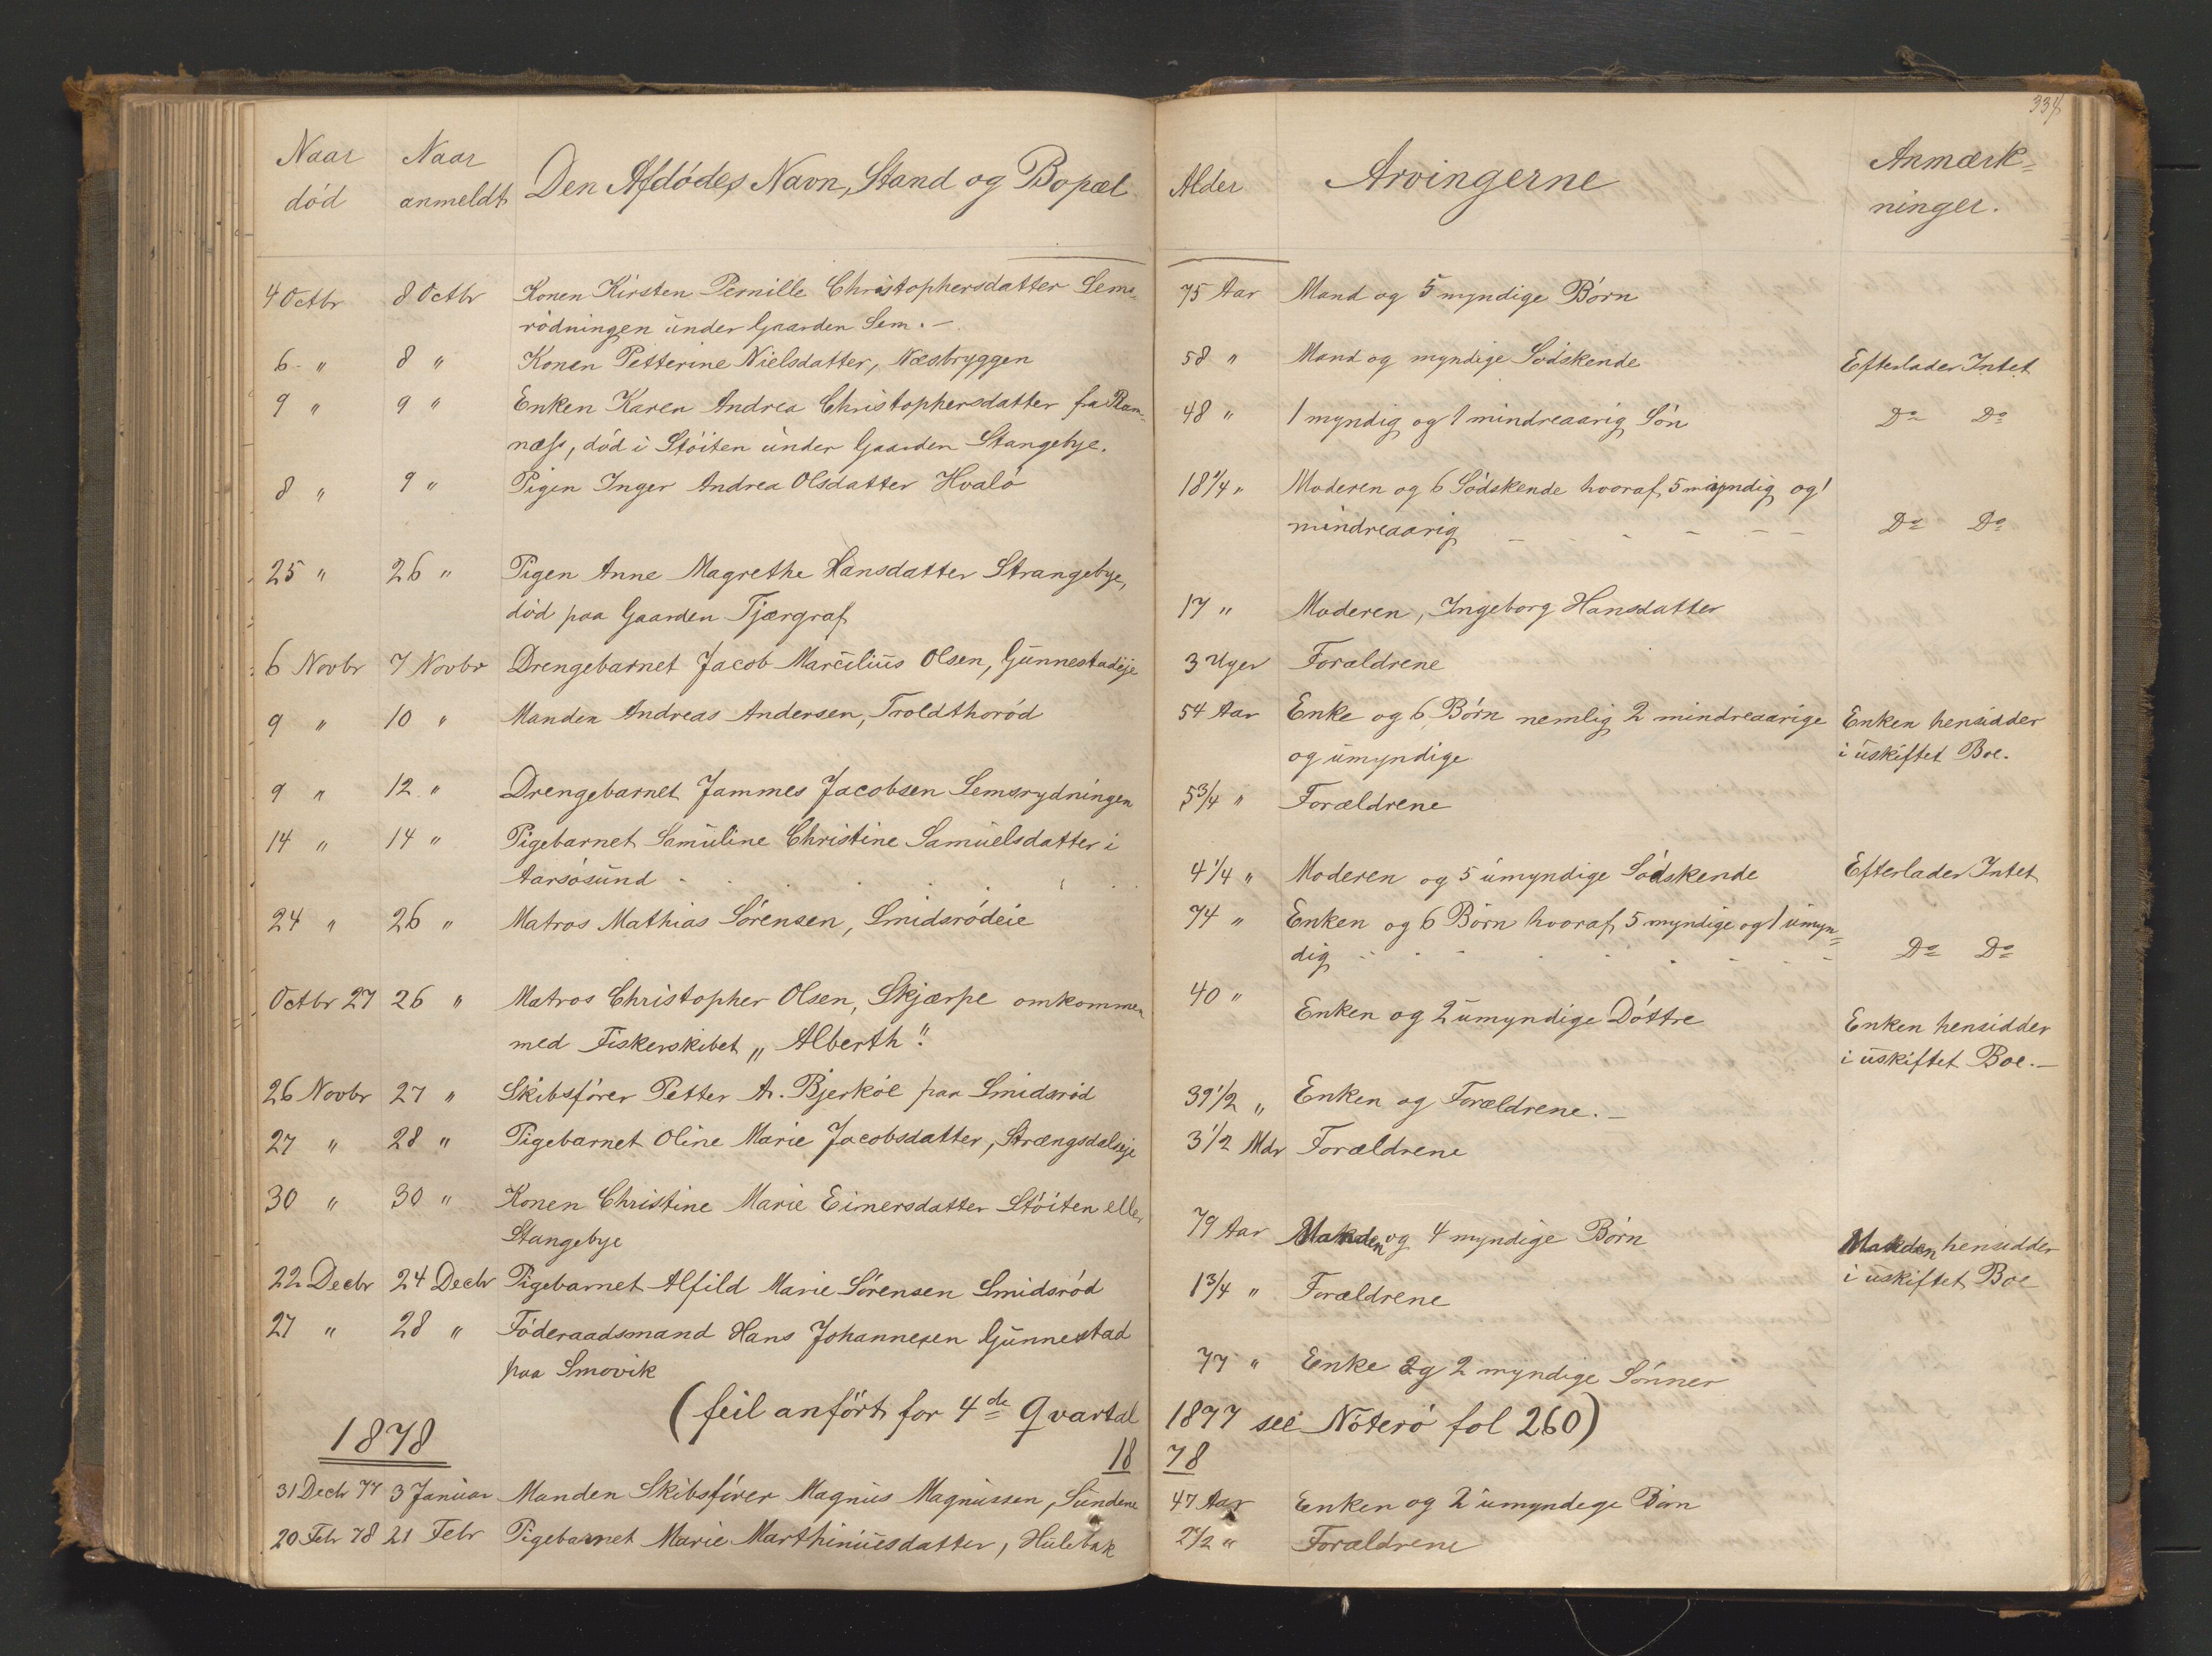 334
Naar død
Naar anmeldt
Den Afdødes Navn, Stand og Bopæl
Alder
Arvingerne
Anmærk=
ninger.
4 Octbr 8 Octbr Konen Kirsten Pernille Christophersdatter Sems- 75 Aar Mand og 5 myndige Børn
rødningen under Gaarden Sem.-
6 " 8 " Konen Petterine Nielsdatter, Næsbryggen 58 " Mand og myndige Sødskende Efterlader Intet
9 " 9 " Enken Karen Andrea Christophersdatter fra Ram- 48 " 1 myndig og 1 mindreaarig Søn Do Do
næss, død i Støiten under Gaarden Stangebye.
8 " 9 " Pigen Inger Andrea Olsdatter Hvalø 18 1/4 " Moderen og 6 Sødskende hvoraf 5 myndig og 1
mindreaarig - - - - - Do Do
25 " 26 " Pigen Anne Magrethe Hansdatter Strangebye,
død paa Gaarden Tjærgraf 17 " Moderen, Ingeborg Hansdatter
6 Novbr 7 Novbr Drengebarnet Jacob Marcilius Olsen, Gunnestadeje 3 Uger Forældrene
9 " 10 " Manden Andreas Andersen, Troldthorød 54 Aar Enke og 6 Børn nemlig 2 mindreaarige Enken hensidder
og umyndige i uskiftet Boe.
9 " 12 " Drengebarnet Jammes Jacobsen Semsrydningen 5 3/4 " Forældrene
14 " 14 " Pigebarnet Samuline Christine Samuelsdatter i
Aarsøsund 4 1/4 " Moderen og 5 umyndige Sødskende Efterlader Intet
24 " 26 " Matros Mathias Sørensen, Smidsrødeie 74 " Enken og 6 Børn hvoraf 5 myndige og 1 umyn=
dig - - - - - Do Do
Octbr 27 26 " Matros Christopher Olsen, Skjærpe omkommen 40 " Enken og 2 umyndige Døttre Enken hensidder
med Fiskerskibet „Alberth". i uskiftet Boe.-
26 Novbr 27 " Skibsfører Petter A. Bjerkøe paa Smidsrød 39 1/2 " Enken og Forældrene.-
27 " 28 " Pigebarnet Oline Marie Jacobsdatter, Strængsdalseje 3 1/2 Mdr Forældrene
30 " 30 " Konen Christine Marie Eimersdatter Støiten eller
Stangebye 79 Aar Manden og 4 myndige Børn Manden hensidder
i uskiftet Boe
22 Decbr 24 Decbr Pigebarnet Alfild Marie Sørensen Smidsrød 1 3/4 " Forældrene
27 " 28 " Føderaadsmand Hans Johannesen Gunnestad
paa Smovik 77 " Enke og 2 myndige Sønner
(feil anført for 4de Qvartal 1877 see Nøterø fol 260)
1878
18 78
31 Decbr 77 3 Januar Manden Skibsfører Magnus Magnussen, Sundene 47 Aar Enken og 2 umyndege Børn
20 Febr 78 21 Febr Pigebarnet Marie Marthiniusdatter, Hulebak 2 1/2 " Forældrene